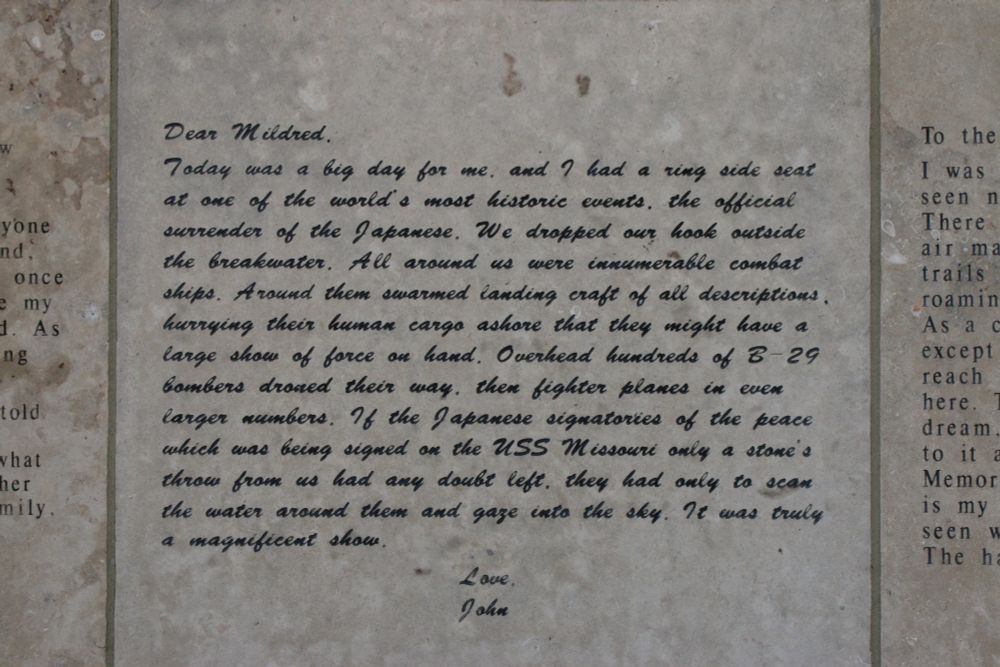 w
yone
nd,
once
e my
d. As
ng
told
what
her
mily.
Dear Mildred,
Today was a big day for me, and I had a ring side seat
at one of the world's most historic events, the official
surrender of the Japanese. We dropped our hook outside
the breakwater. All around us were innumerable combat
ships. Around them swarmed landing craft of all descriptions,
hurrying their human cargo ashore that they might have a
large show of force on hand. Overhead hundreds of B-29
bombers droned their way, then fighter planes in even
larger numbers. If the Japanese signatories of the peace
which was being signed on the USS Missouri only a stone's
throw from us had any doubt left, they had only to scan
the water around them and gaze into the sky. It was truly
a magnificent show.
Love,
John
To the
I was
seen n
There
air ma
trails
roamin
As a c
except
reach
here. T
dream.
to it a
Memor
is my
seen w
The ha